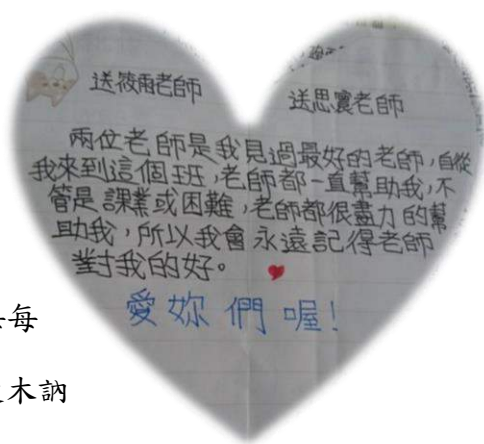 送筱雨老師 送思寰老師
兩位老師是我見過最好的老師,自從
我來到這個班,老師都一直幫助我,不
管是課業或困難,老師都很盡力的幫
助我,所以我會永遠記得老師
對我的好。
愛妳們喔!
每
木訥